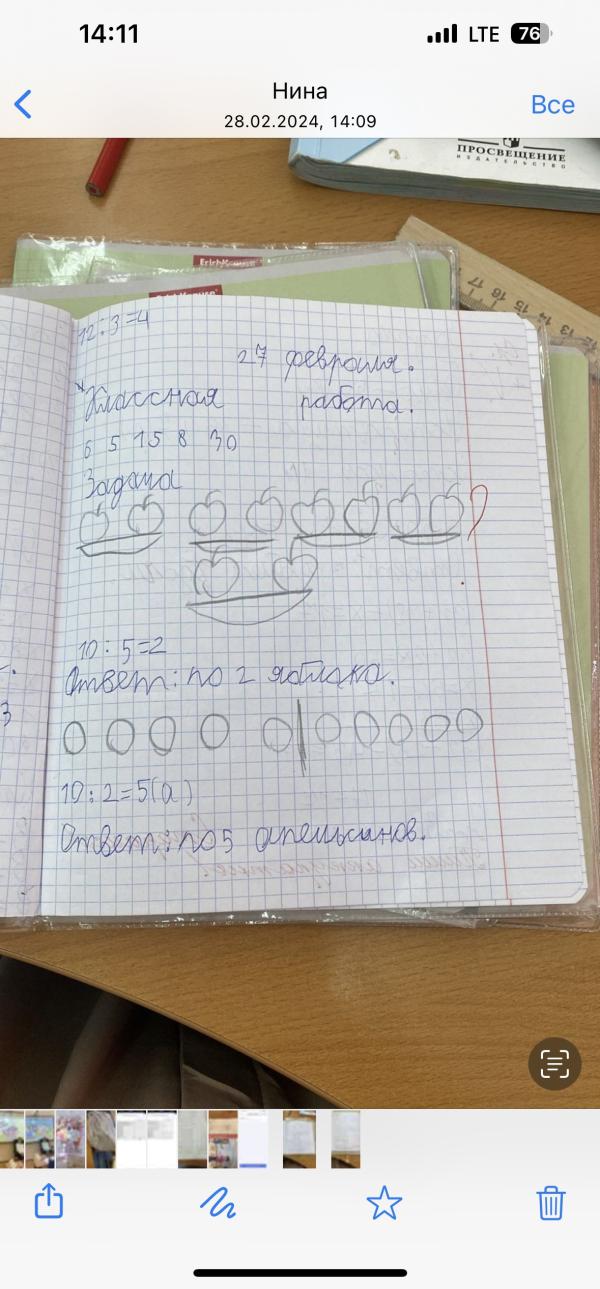 14:11
LTE 76
Нина
Все
28.02.2024, 14:09
ПРОСВЕЩЕНИЕ
ИЗДАТЕЛЬСТВО
ErichKrause
17 16 15 14 13 12
12:3=4
27 февраля.
Классная работа.
6 5 15 8 30
Задача
10:5=2
Ответ: по 2 яблака.
3
10:2=5(а)
Ответ: по 5 апельсинов.